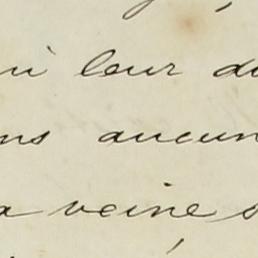 ui leur d
ns aucun
a veine s